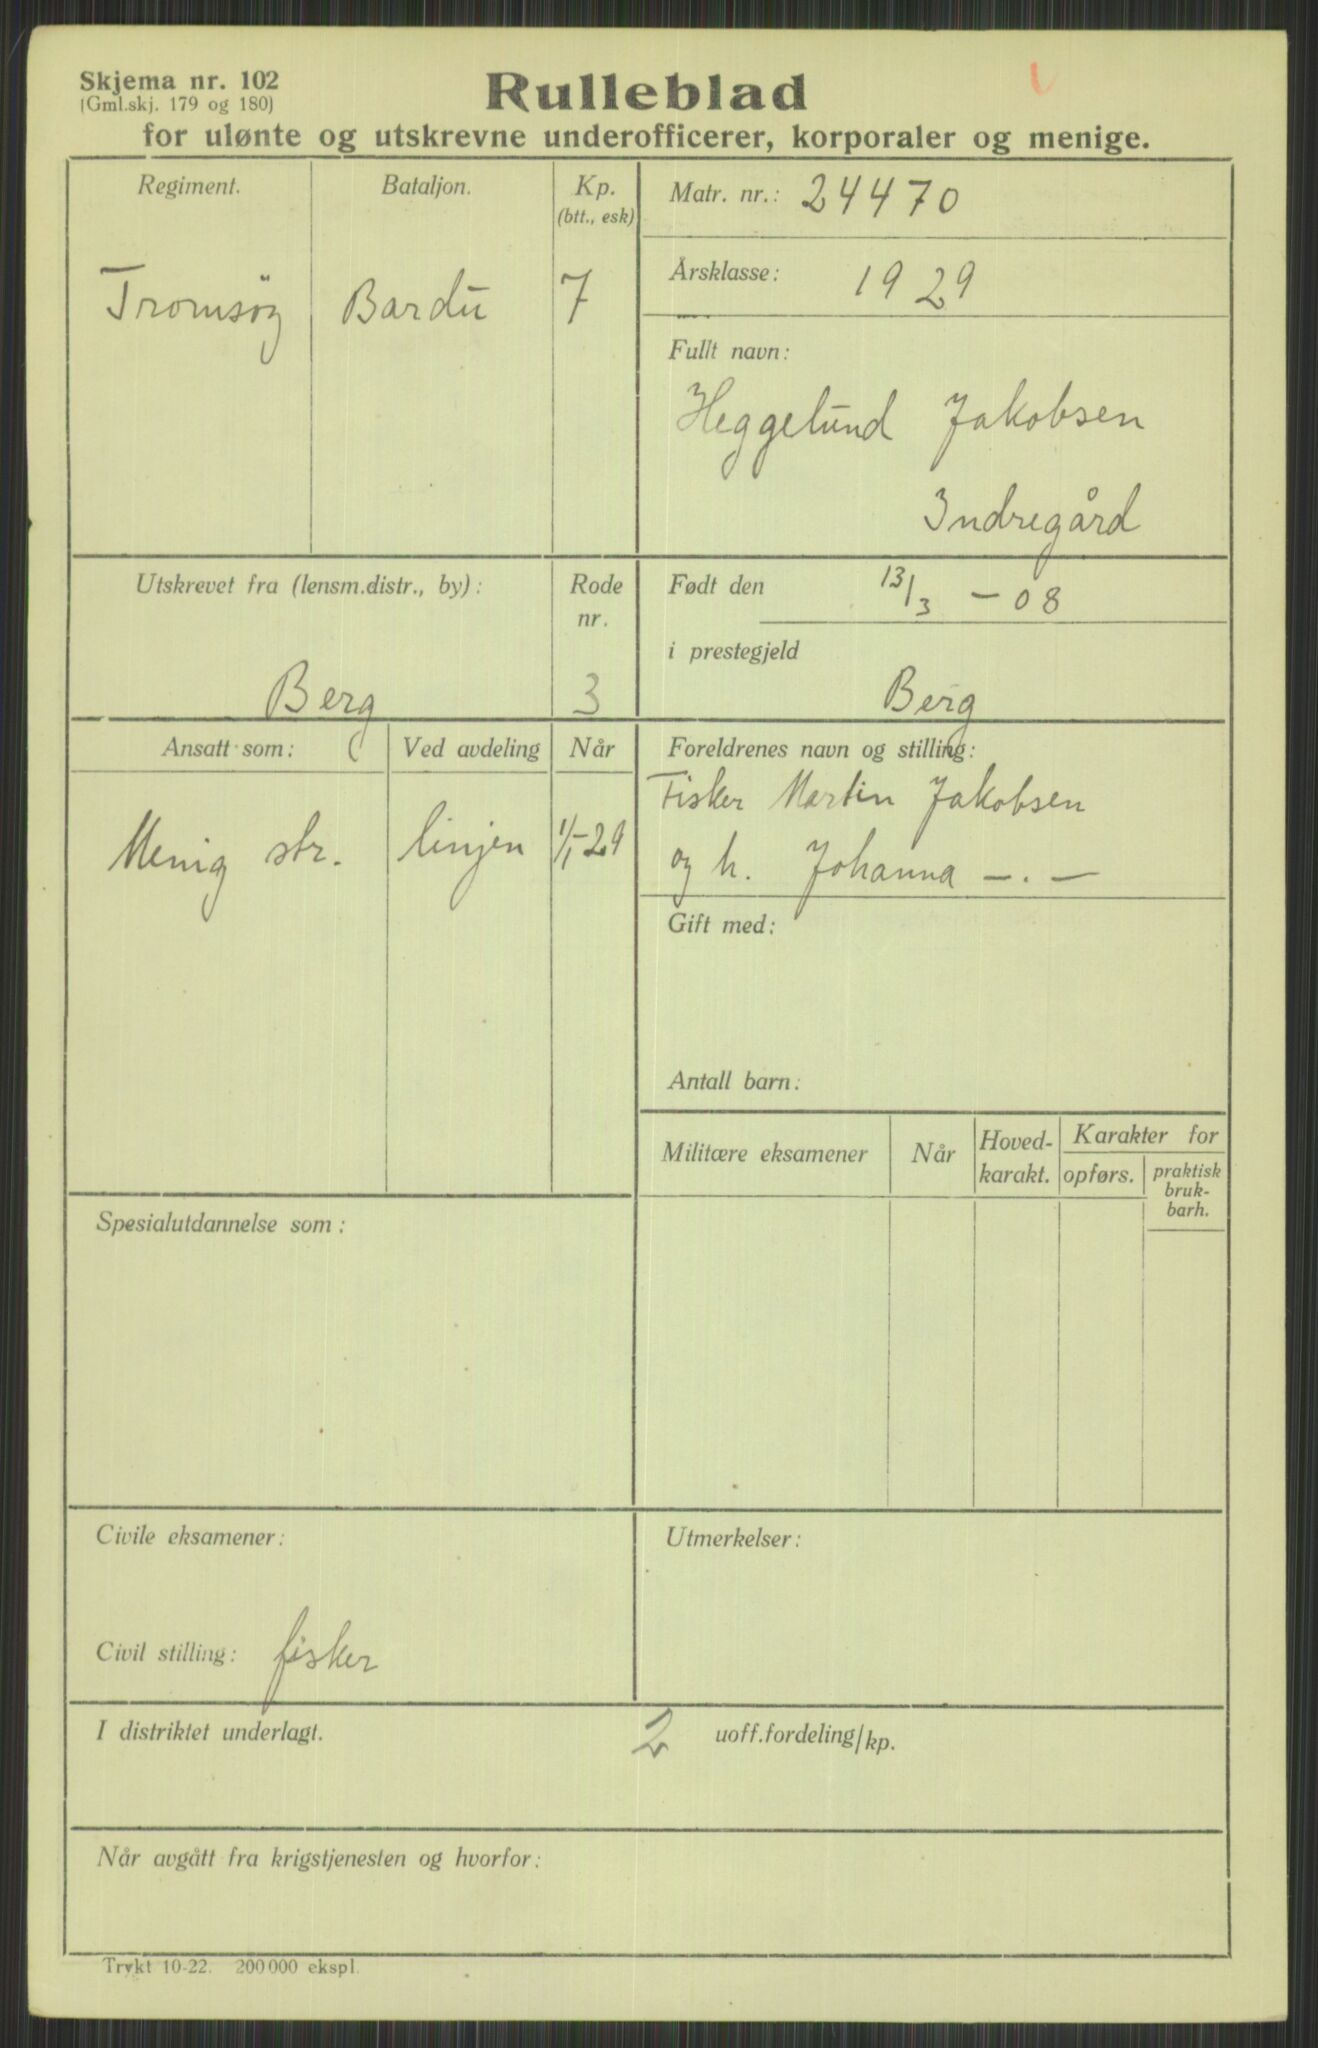 Skjema nr. 102
(Gml.skj. 179 og 180)
Rulleblad
for ulønte og utskrevne underofficerer, korporaler og menige.
Regiment.
Bataljon.
Kp.
(btt., esk)
Tromsøy
Bardu
7
Matr. nr.: 24470
Årsklasse: 1929
Fullt navn:
Heggelund Jakobsen
Indregård
Utskrevet fra (lensm.distr., by):
Berg
Rode
nr.
3
Født den 13/3 - 08
i prestegjeld
Berg
Ansatt som:
Ved avdeling
Når
Menig str.
linjen
1/1-29
Foreldrenes navn og stilling:
Fisker Martin Jakobsen
og h. Johanna —.—
Gift med:
Antall barn:
Militære eksamener
Når
Hoved-
karakt.
Karakter for
opførs.
praktisk
bruk-
barh.
Spesialutdannelse som:
Civile eksamener:
Civil stilling: fisker
Utmerkelser:
I distriktet underlagt.
2 uoff.fordeling/kp.
Når avgått fra krigstjenesten og hvorfor:
Trykt 10-22. 200000 ekspl.